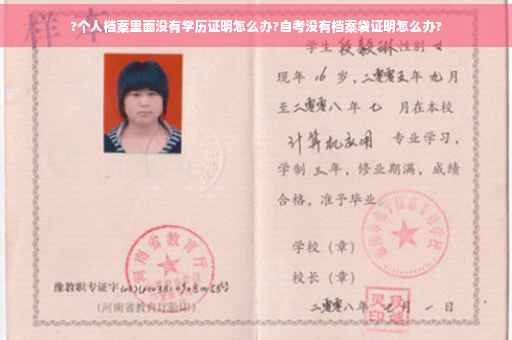 ?个人档案里面没有学历证明怎么办?自考没有档案袋证明怎么办?
样本
学生段毅琳性别女
现年16岁，二零零五年九月
至二零零八年七月在本校
计算机应用 专业学习，
学制三年，修业期满，成绩
合格，准予毕业。
学校（章）
校长（章）
二零零八年七月一日
河南省教育厅
豫教职专证字
（河南省教育厅验印）